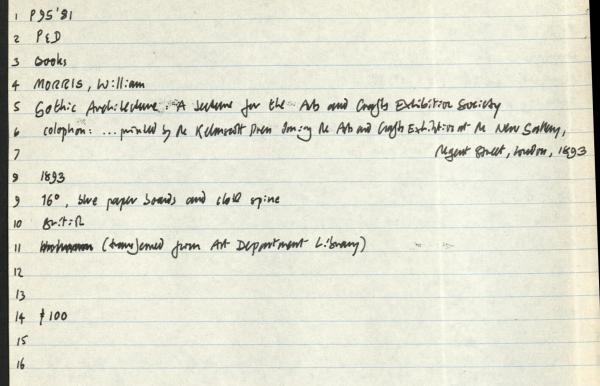 1 P95'81
2 P&D
3 Books
4 MORRIS, William
5 Gothic Architecture: A Lecture for the Arts and Crafts Exhibition Society
6 colophon: ... printed by the Kelmscott Press during the Arts and Crafts Exhibition at the New Gallery,
7 Regent Street, London, 1893
8 1893
9 16°, blue paper boards and cloth spine
10 British
11 (transferred from Art Department Library)
12
13
14 $100
15
16